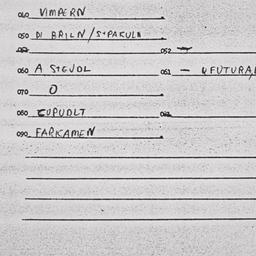 040 VIMPERN
050 DI BRILN / S+PAKULN
052 —
060 A S+EVOL 061 — UFUTURA
070 O
080 EUPUDLT
090 FARKAMEN